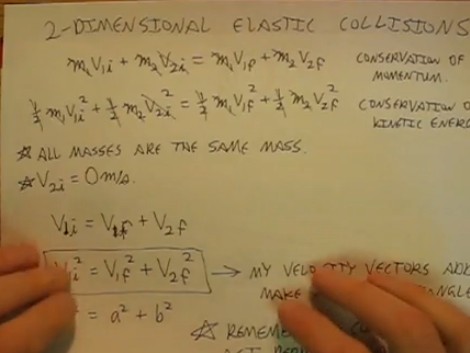 2-DIMENSIONAL ELASTIC COLLISIONS
m₁V₁i + m₂V₂i = m₁V₁f + m₂V₂f CONSERVATION OF MOMENTUM.
½m₁V₁i² + ½m₂V₂i² = ½m₁V₁f² + ½m₂V₂f² CONSERVATION O KINETIC ENERG
☆ ALL MASSES ARE THE SAME MASS.
☆ V₂i = 0 m/s.
V₁i = V₁f + V₂f
i² = V₁f² + V₂f² → MY VELOCITY VECTORS ADD
MAKE
² = a² + b²
☆ REMEM